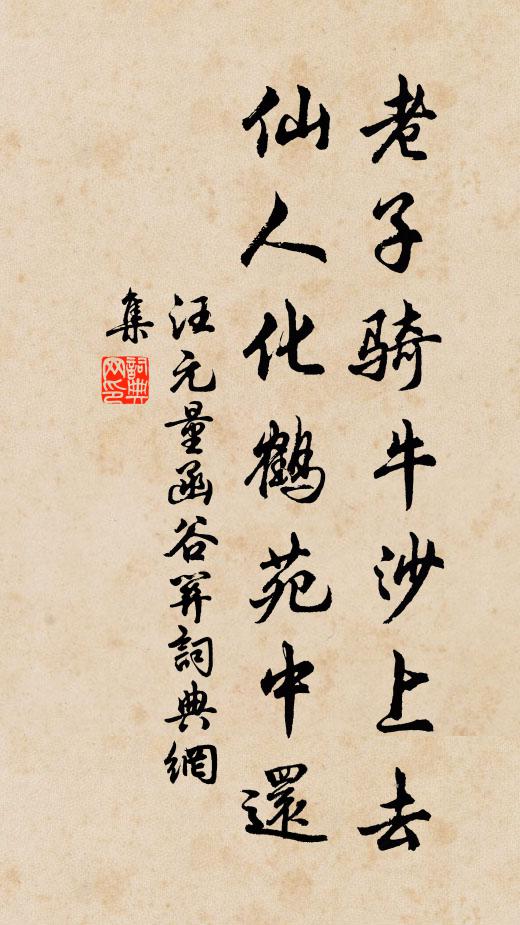 老子骑牛沙上去
仙人化鹤苑中還
汪元量函谷关詞典網
集
詞典
网印